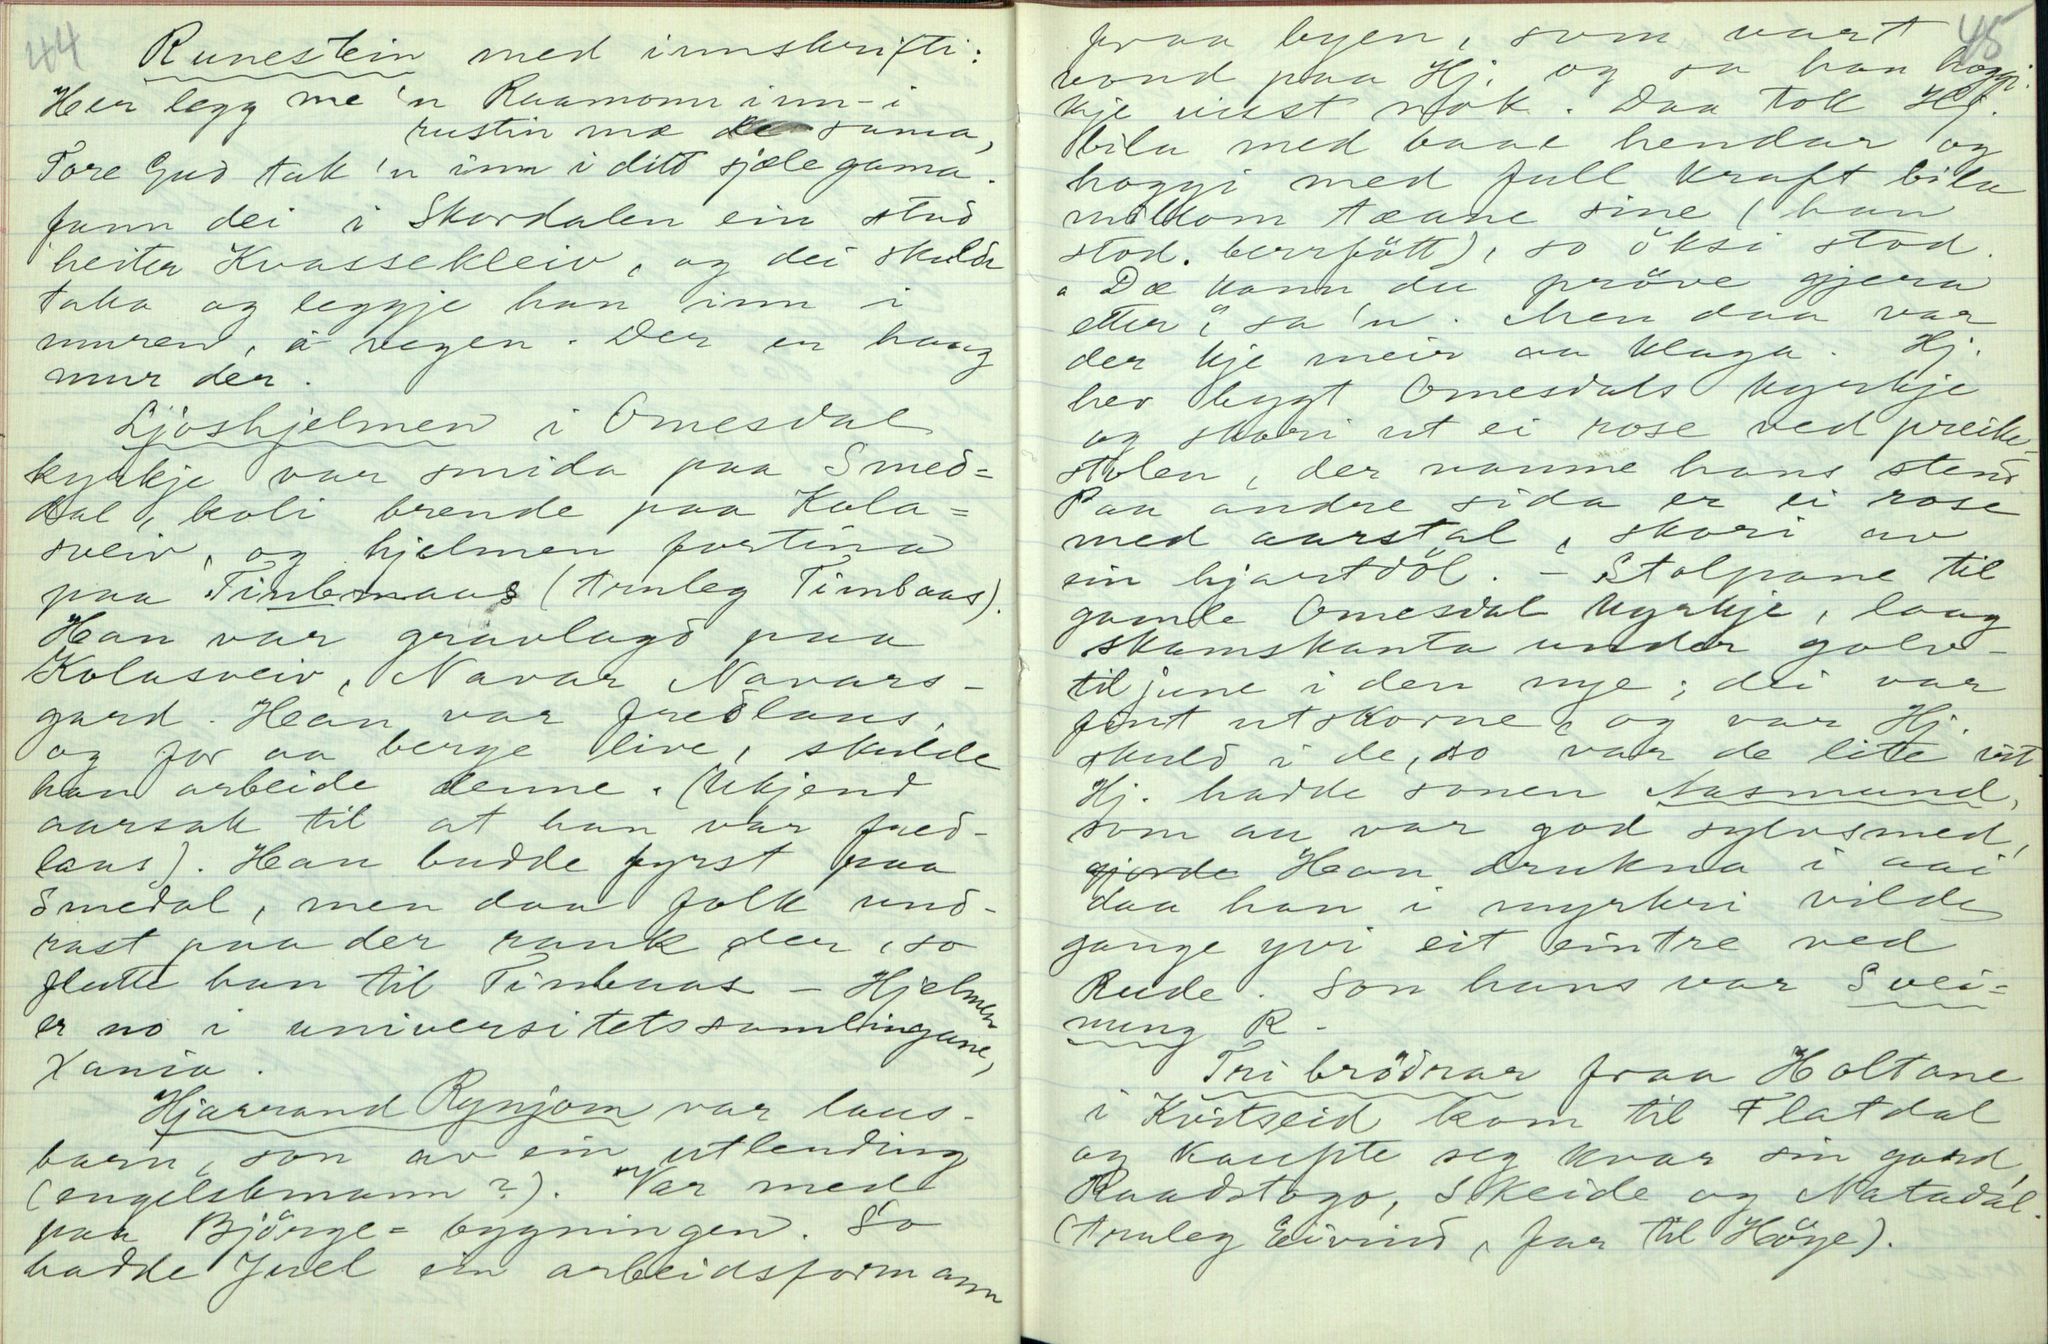 44
Runestein med innskrifti:
Her legg me 'n Raamom inn-i
rustin mæ de sama,
Tore Gud tak 'n inn i ditt sjælegama.
funn dei i Skordalen ein stad
heiter Kvassekleiv, og dei skulde
taka og leggje han inn i
muren, å vegen. Der er haug
mur der.
Ljoshjelmen i Omesdal
kyrkje var smida paa Smed=
dal, koli brende paa Kola=
sveiv, og hjelmen fortina
paa Tinbmaas (truleg Tinbaas).
Han var gravlagd paa
Kolasveiv, Navar Navars-
gard. Han var fredlaus,
og for aa berge live, skulde
han arbeide denne. (Ukjend
aarsak til at han var fred-
laus). Han budde fyrst paa
Smedal, men daa folk und-
rast paa der rauk der, so
flutte han til Tinbaas – Hjelmen
er no i universitetssamlingane,
Xania.
Hjarrand Rynjom var laus-
barn, son av ein utlending
(engelskmann?). Var med
paa Björge=bygningen. So
hadde Juel ein arbeidsformann
45
fraa byen, som vart
vond paa Hj. og sa han hoggi
kje visst nok. Daa tok Hj.
bila med baae hendar og
hoggi med full kraft bila
millom tæane sine (han
stod berrfött), so öksi stod.
"Dæ kann du pröve gjera
etter", sa 'n. Men daa var
der kje meir aa klaga. Hj.
hev bygt Omesdals kyrkje
og skori ut ei rose ved preike-
stolen, der namne hans stend
Paa andre sida er ei rose
med aarstal, skori av
ein hjartdöl. – Stolpane til
gamle Omesdal kyrkje, laag
skamskanta under golv-
tiljune i den nye; dei var
fint utskorne, og var Hj.
skuld i de, so var de lite vit.
Hj. hadde sonen Aasmund,
som au var god sylvsmed,
gjorde Han drukna i aai
daa han i myrkri vilde
gange yvi eit eintre ved
Rude. Son hans var Svei=
nung R.
Tri brödrar fraa Holtane
i Kvitseid kom til Flatdal
og kaupte seg kvar sin gard,
Raadstogo, Skeide og Natadal.
(truleg Eivind, far til Höye).